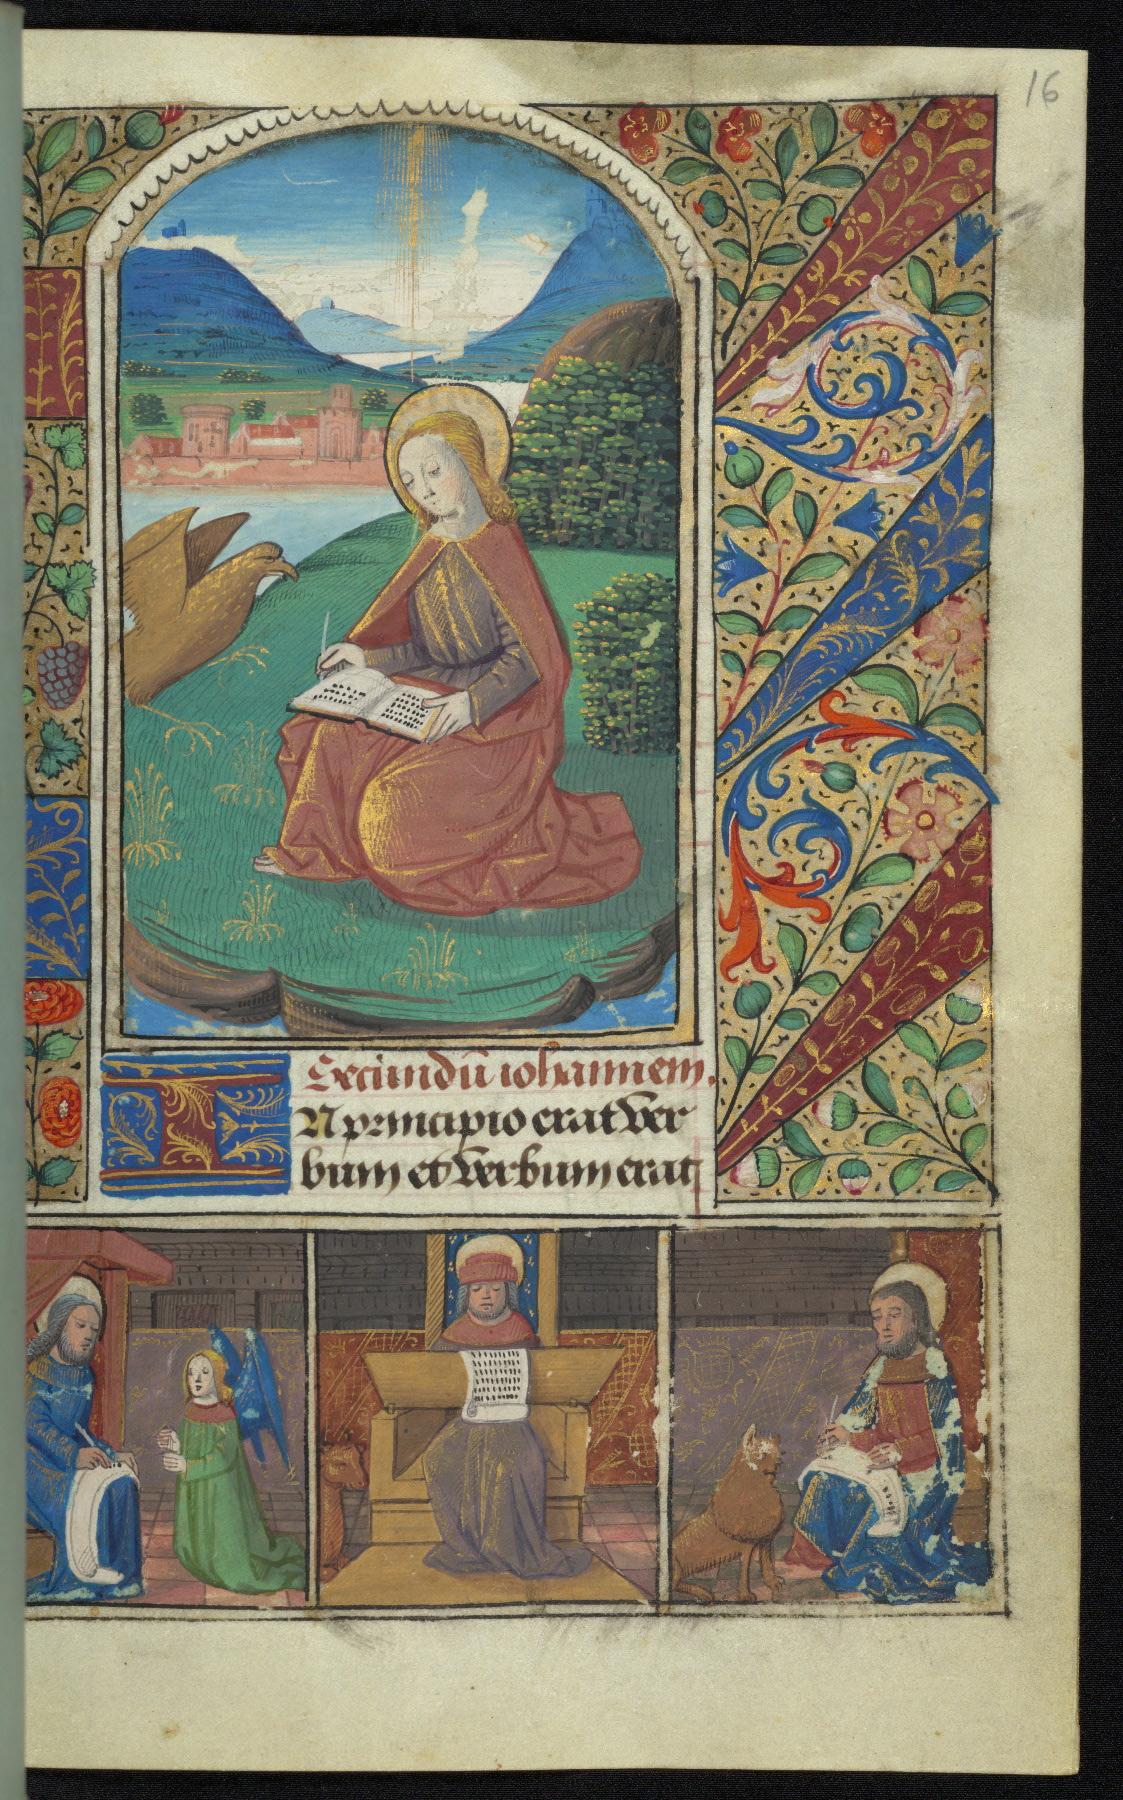 16
Secundū iohannem.
IN principio erat ver
bum et verbum erat